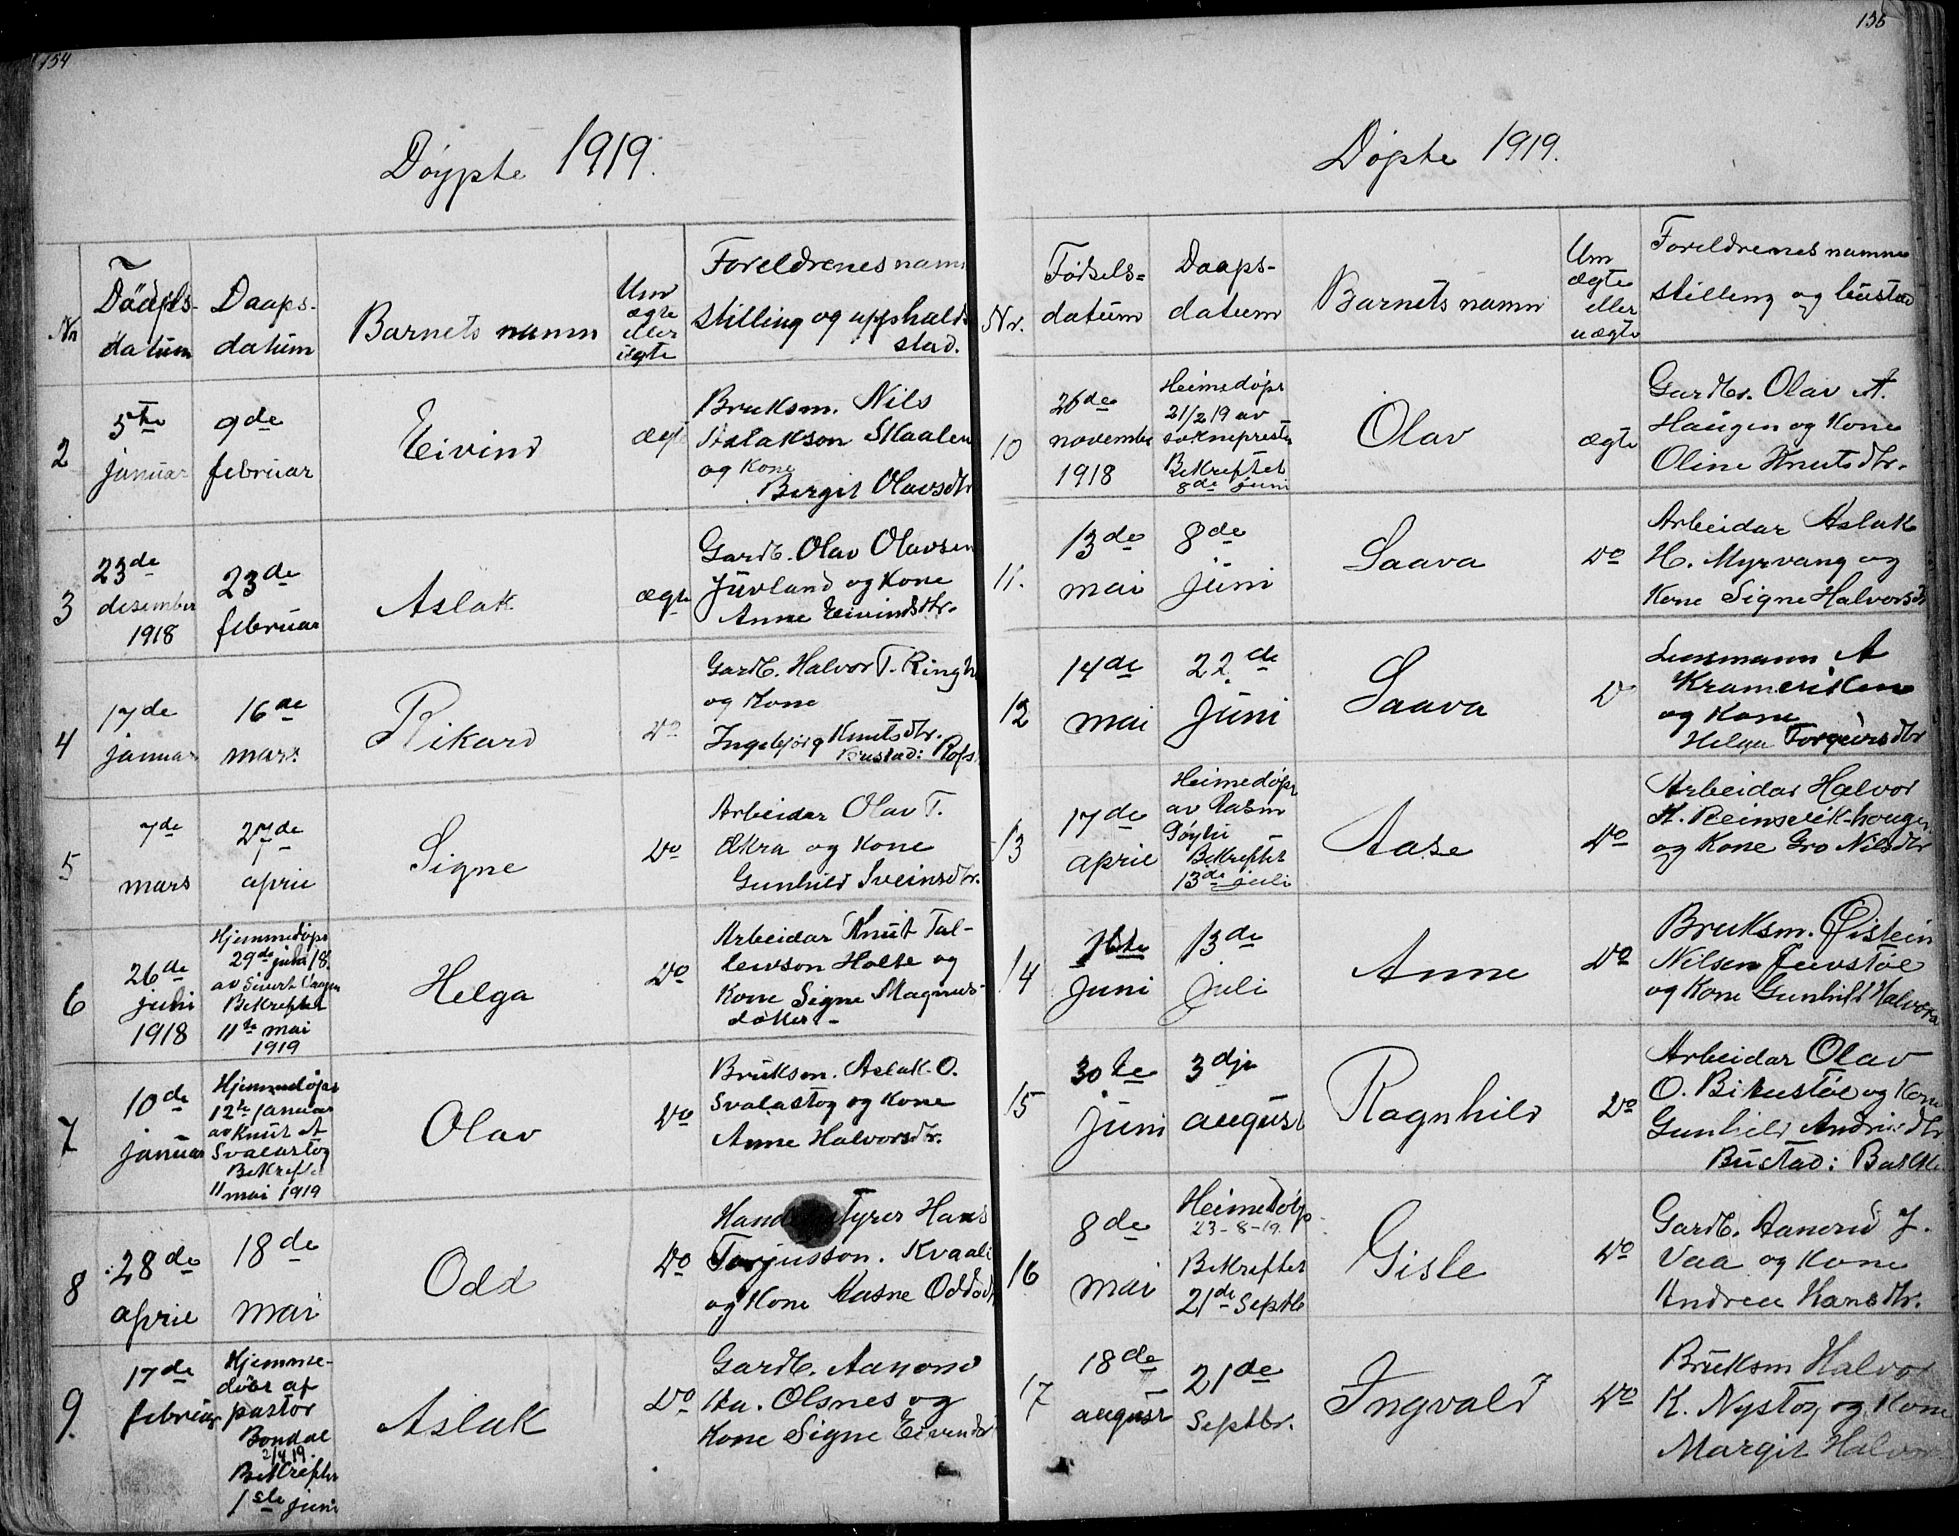 154
Døypte 1919.
Nr
Daaps-
datum
Daaps-
datum
Barnets namn
Um
ægte
eller
uægte
Foreldrenes namn
stilling og upphalds
stad.
2
5te
januar
9de
februar
Eivind
ægte
Bruksm. Nils
Aslakson Skaalen
og Kone
Birgit Olavsdtr
3
23de
desember
1918
23de
februar
Aslak
ægte
Gardb. Olav Olavsen
Juvland og Kone
Anne Eivindsdtr.
4
17de
januar
16de
mars
Rikard
Do
Gardb. Halvor T.
og Kone
Ingebjørg Knutsdtr.
Bustad:
5
7de
mars
27de
april
Signe
Do
Arbeidar Olav T.
Økra og Kone
Gunhild Sveinsdtr.
6
26de
juni
1918
Hjemmedøpt
29de juni 18.
av Sivert
Bekreftet
11te mai
1919
Helga
Do
Arbeidar Knut Tal-
levson Holte og
Kone Signe Magnus-
dotter-
7
10de
januar
Hjemmedøpt
12te januar
av Knut A
Svalastog
Bekreftet
11 mai 1919
Olav
Do
Bruksm. Aslak O.
Svalastog og Kone
Anne Halvorsdtr.
8
28de
april
18de
mai
Odd
Do
Hans
Torjusson. Kvaale
og Kone Aasne Oddsdtr
9.
17de
februar
Hjemme-
døbt af
pastor
Bondal
2/4 19.
Bekreftet
1ste juni
Aslak
Do
Gardb. Aamond
Aa. Olsnes og
Kone Signe
135
Døpte 1919.
Nr.
Fødsels-
datum
Daaps-
datum
Barnets namn
Um
ægte
eller
uægte
Foreldrenes namn
stilling og bustad
10
26de
november
1918
Heimedøpt
21/2 19 av
soknepresten
Bekreftet
8de juni
Olav
ægte
Gardbr. Olav A.
Haugen og Kone
Oline Knutsdtr.
11.
13de
mai
8de
juni
Saava
Do
Arbeidar Aslak
H. Myrvang og
Kone Signe Halvorsdtr
12
14de
mai
22de
juni
Saava
Do
Lensmann A
og Kone
Helga Torgeirsdtr
13
17de
april
Heimedøpt
av Rasm
Bekreftet
13de juli
Aase
Do
Arbeidar Halvor
og Kone Gro Nilsdtr
14
juni
13de
juli
Anne
Do
Bruksm. Øistein
Nilsen Juvstøl
og Kone Gunhild
15
30te
juni
3dje
august
Ragnhild
Do
Arbeidar Olav
O. Bitustøl og Kone
Gunhild
Bustad:
16
8de
mai
Heimedøp
23-8-19.
Bekreftet
21de Septb
Gisle
Do
Gardb. Aamund J.
Vaa og Kone
Andrea Hansdtr.
17
18de
august
21de
Septbr.
Ingvald
Do
Bruksm Halvor
K. Nystog og Kone
Margit